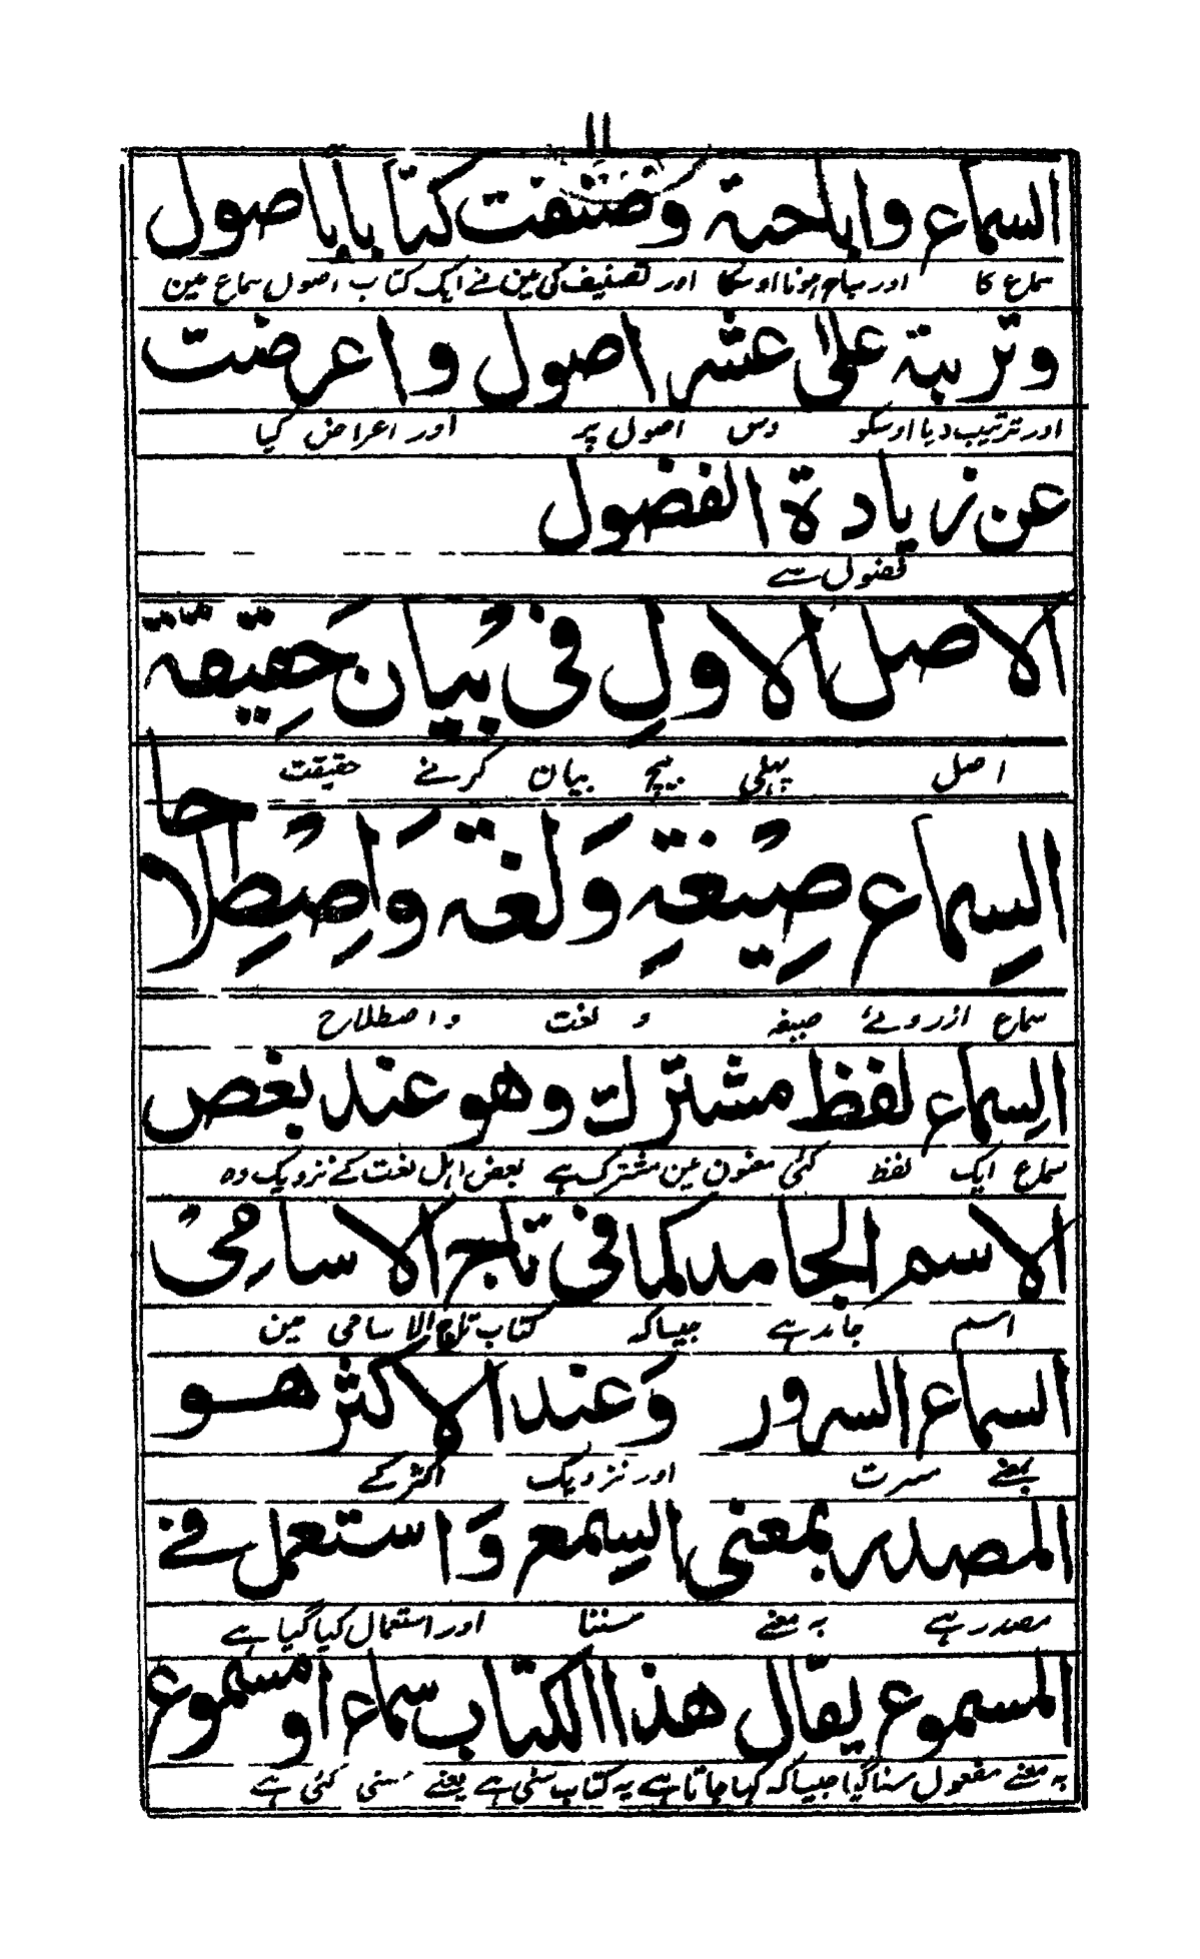 ١١
السماع واباحته وصنفت كتابا باصول
سماع کا اور مباح ہونا اوسکا اور تصنیف کی مین نے ایک کتاب اصول سماع مین
وترتبته على عشر اصول واعرضت
اور ترتیب دیا اوسکو دس اصول پر اور اعراض کیا
عن زيادة الفضول
فضول سے
الاصل الاولِ فى بُيانَ حَقِيقة
اصل پہلی بیچ بیان کرنے حقیقت
السِماع صِيُغةِ وَلغة وَاصِطِلاحا
سماع ازروئے صیغہ و لغت و اصطلاح
السِماع لفظ مشترك وهو عند بغص
سماع ایک لفظ کئی معنون مین مشترک ہے بعض اہل لغت کے نزدیک وہ
الاسم الجامد كما فى تاج الاسامى
اسم جامد ہے جیسا کہ کتاب تاج الاسامی مین
السماع السرور وَعند الاكثر هو
بمعنے مسرت اور نزدیک اکثر کے
المصدر بمعنى السِمع وَاستعمل فے
مصدر ہے بہ معنے سننا اور استعمال کیا گیا ہے
المسموع يقال هذا الكتاب سماع او مسموع
بہ معنے مفعول سنا گیا جیسا کہ کہا جاتا ہے یہ کتاب سنی ہے یعنے سُنی گئی ہے